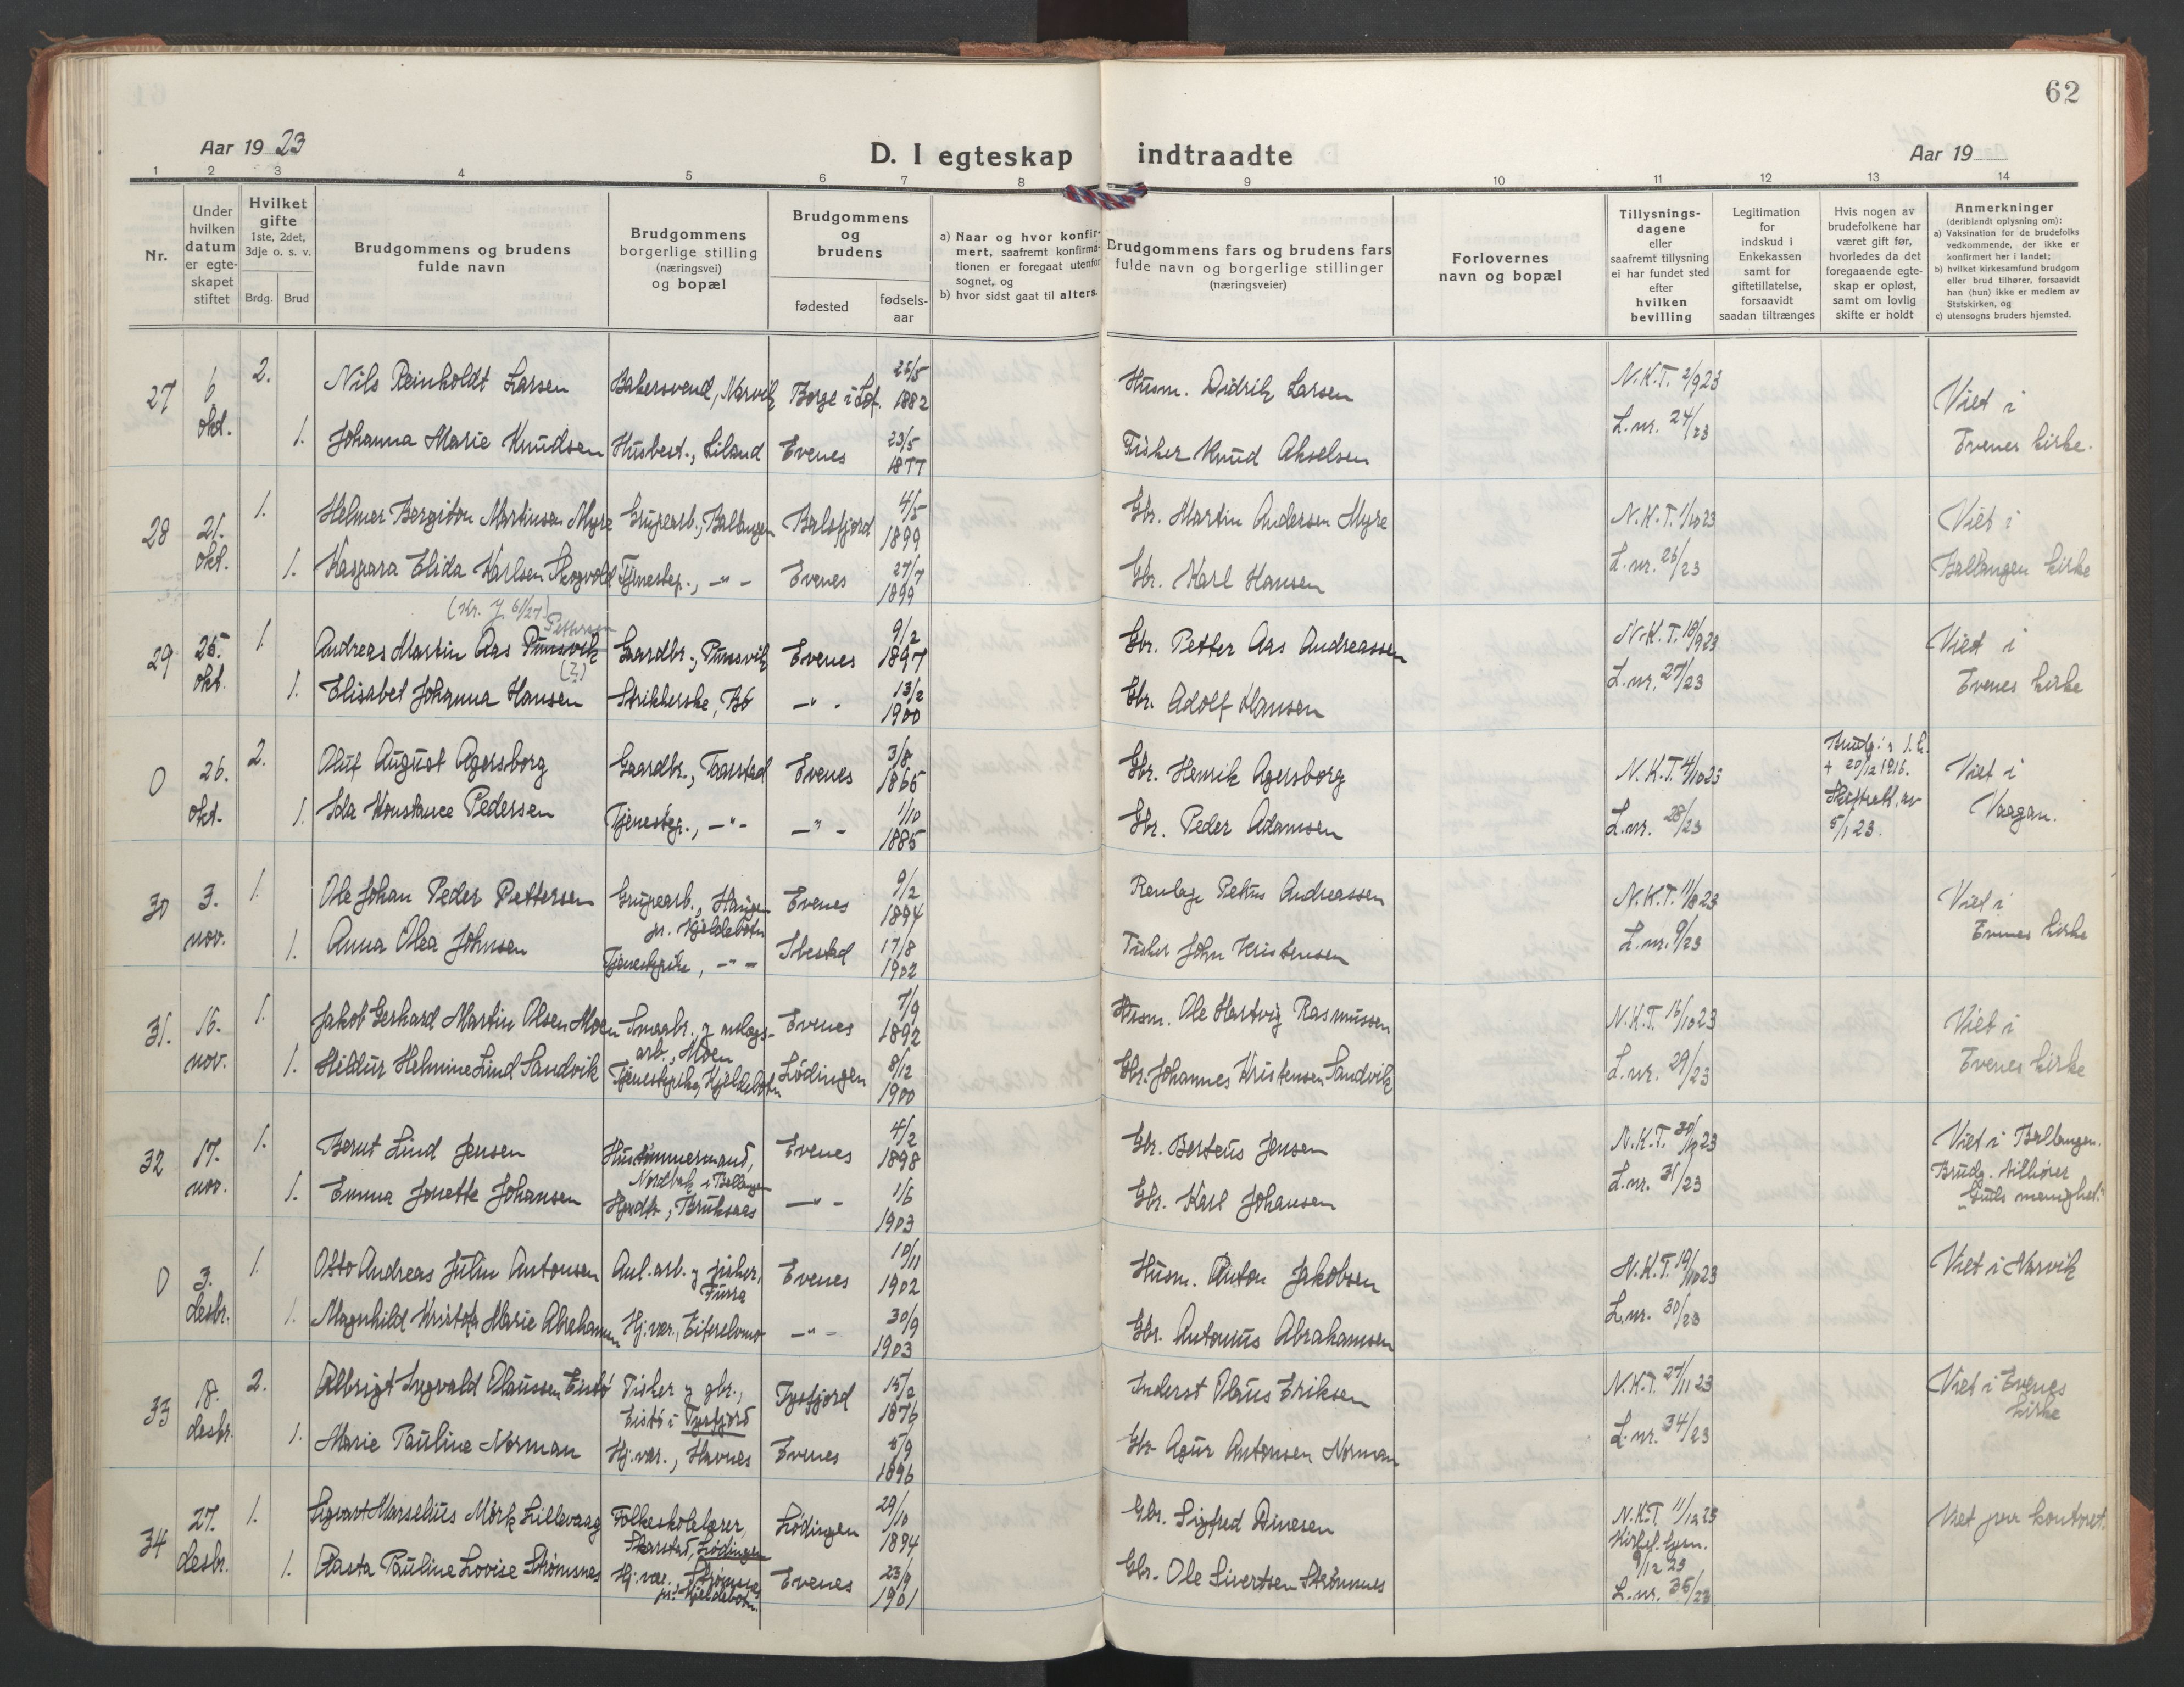 62
Aar 19 23
D. I egteskap indtraadte
Aar 19
1 2 3 4 5 6 7 8 9 10 11 12 13 14
Nr.
Under hvilken datum er egteskapet stiftet
Hvilket gifte
1ste, 2det, 3dje o. s. v.
Brdg. Brud
Brudgommens og brudens fulde navn
Brudgommens borgerlige stilling (næringsvei) og bopæl
Brudgommens og brudens
fødested
fødselsaar
a) Naar og hvor konfirmert, saafremt konfirmationen er foregaat utenfor sognet, og
b) hvor sidst gaat til alters.
Brudgommens fars og brudens fars fulde navn og borgerlige stillinger (næringsveier)
Forlovernes navn og bopæl
Tillysningsdagene eller saafremt tillysning ei har fundet sted efter hvilken bevilling
Legitimation for indskud i Enkekassen samt for giftetillatelse, forsaavidt saadan tiltrænges
Hvis nogen av brudefolkene har været gift før, hvorledes da det foregaaende egteskap er opløst, samt om lovlig skifte er holdt
Anmerkninger
(deriblandt oplysning om):
a) Vaksination for de brudefolks vedkommende, der ikke er konfirmert her i landet;
b) hvilket kirkesamfund brudgom eller brud tilhører, forsaavidt han (hun) ikke er medlem av Statskirken, og
c) utensogns bruders hjemsted.
27 6 okt. 2. Nils Reinholdt Larsen Bakersvend, Narvik Borge i Lof. 25/5 1882 Husm. Didrik Larsen N.K.T. 2/9 23 Viet i
1. Johanna Marie Knudsen Husbest., Liland Evenes 23/5 1877 Fisker Knud Akselsen L.nr. 24/23 Evenes kirke.
28 21. okt. 1. Helmer Bergiton Martinsen Myre Grupearb., Ballangen Balsfjord 4/5 1899 Gbr. Martin Andersen Myre N.K.T. 1/10 23 Viet i
1. Kaspara Elida Karlsen Skogvold Tjenestep., -"- Evenes 27/7 1899 Gbr. Karl Hansen L.nr. 26/23 Ballangen kirke
Pettersen
29 25. okt. 1. Andreas Martin Aas Punsvik Gaardbr., Punsvik Evenes 9/2 1897 Gbr. Petter Aas Andreassen N.K.T. 18/9 23 Viet i
1. Elisabet Johanna Hansen Strikkerske, Bø -"- 13/2 1900 Gbr. Adolf Hansen L.nr. 27/23 Evenes kirke
0 26. okt. 2. Oluf August Agersborg Gaardbr., Taarstad Evenes 3/8 1865 Gbr. Henrik Agersborg N.K.T. 4/10 23 + 20/12 1916. Viet i
1. Ida Konstance Pedersen Tjenestep., -"- -"- 1/10 1885 Gbr. Peder Adamsen L.nr. 28/23 Skifteatt. av 5/1 23. Vaagan.
30 3. nov. 1. Ole Johan Peder Pettersen Grupearb., Haugen pr. Kjeldebotn Evenes 9/2 1894 Petter Andreassen N.K.T. 11/8 23 Viet i
1. Anna Olea Johnsen Tjenestepike, -"- Ibestad 17/8 1902 Fisker John Kristensen L.nr. 9/23 Evenes kirke
31. 16. nov. 1. Jakob Gerhard Martin Olsen Moen Smaabr. og anlægsarb., Moen Evenes 7/9 1892 Husm. Ole Hartvig Rasmussen N.K.T. 16/10 23 Viet i
1. Hildur Helmine Lind Sandvik Tjenestepike, Kjeldebotn Lødingen 8/12 1900 Gbr. Johannes Kristensen Sandvik L.nr. 29/23 Evenes kirke
32 17. nov. 1. Bernt Lind Jensen Hustømmermand, i Ballangen Evenes 4/2 1898 Gbr. Berteus Jensen N.K.T. 30/10 23 Viet i Ballangen.
1. Emma Jonette Johansen Husdt., Bruksaas -"- 1/6 1903 Gbr. Karl Johansen L.nr. 31/23 Brudg. tilhører "Guds menighet."
0 3. desbr. 1. Otto Andreas Julin Antonsen Anl.arb. og fisker, Furra Evenes 10/11 1902 Husm. Anton Jakobsen N.K.T. 19/10 23 Viet i Narvik
1. Magnhild Kristofa Marie Abrahamsen Hj.vær., -"- 30/9 1903 Gbr. Antonius Abrahamsen L.nr. 30/23
33 18. desbr. 2. Albrigt Ingvald Olaussen Eistø Fisker og gbr., Eistø i Tysfjord Tysfjord 15/2 1876 Inderst Olaus Eriksen N.K.T. 27/11 23 Viet i Evenes kirke
1. Marie Pauline Norman Hj.vær., Havnes Evenes 5/9 1896 Gbr. Agur Antonsen Norman L.nr. 34/23
34 27. desbr. 1. Sigvart Marselius Mörk Lillevaag Folkeskolelærer, Skarstad, Lødingen Lødingen 29/10 1894 Gbr. Sigfred Dinesen N.K.T. 11/12 23 Viet paa kontoret.
1. Aasta Pauline Lovise Strømsnes Hj.vær. Strømsnes pr. Kjeldebotn. Evenes 23/9 1901 Gbr. Ole Sivertsen Strømsnes 9/12 23 L.nr. 36/23